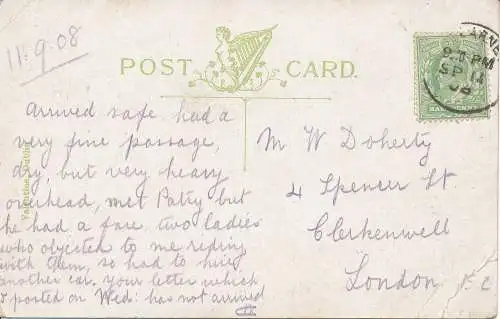 11.9.08
POST CARD.
LARNE
9 PM
SP 11
08
Arrived safe had a
very fine passage,
dry, but very heavy
overhead, met Patsy but
he had a fare two ladies
who objected to me riding
with them, so had to hire
another car. Your letter which
posted on Wed: has not arrived
M W Doherty
4 Spencer St
Clerkenwell
London E C
Valentine, Dublin